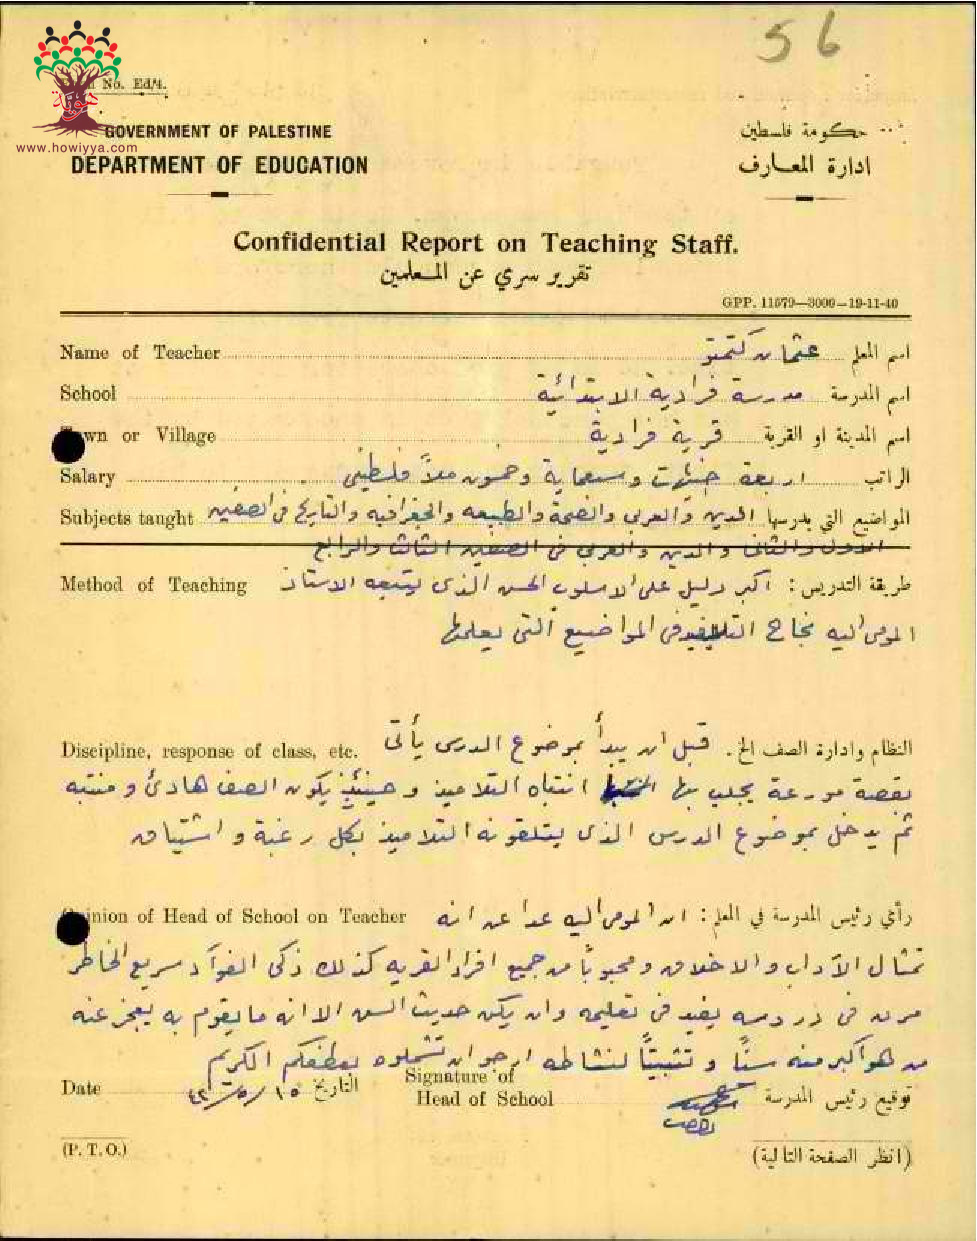 56
No. Ed/4.
www.howiyya.com
GOVERNMENT OF PALESTINE
حكومة فلسطين
DEPARTMENT OF EDUCATION
ادارة المعارف
Confidential Report on Teaching Staff.
تقرير سري عن المعلمين
GPP. 11579—3000—19-11-40
Name of Teacher عثمان كتمتو اسم المعلم
School مدرسة فرادية الابتدائية اسم المدرسة
Town or Village قرية فرادية اسم المدينة او القرية
Salary اربعة جنيهات وسبعماية وخمسون ملاً فلسطيني الراتب
Subjects taught المواضيع التي يدرسها الدين والعربي والصحة والطبيعه والجغرافيه والتاريخ في الصفين
الاول والثاني والدين والعربي في الصفين الثالث والرابع
Method of Teaching طريقة التدريس : اكبر دليل على الاسلوب الحسن الذي يتبعه الاستاذ
المومى اليه نجاح التلاميذ في المواضيع التي يعلمها
Discipline, response of class, etc. النظام وادارة الصف الخ. قبل ان يبدأ بموضوع الدرس يأتي
بقصة مورعة يجلب بها انتباه التلاميذ وحينئذٍ يكون الصف هادئ ومنتبه
ثم يدخل بموضوع الدرس الذي يتلقونه التلاميذ بكل رغبة واشتياق
Opinion of Head of School on Teacher رأي رئيس المدرسة في المعلم : ان المومى اليه عدا عن انه
تمثال الآداب والاخلاق ومحبوباً من جميع افراد القريه كذلك ذكي الفوآد سريع الخاطر
مرن في دروسه يفيد في تعليمه وان يكن حديث السن الا انه ما يقوم به يعجز عنه
من هو اكبر منه سنًا وتثبيتاً لنشاطه ارجو ان تشملوه بعطفكم الكريم
Date ١٥/٥/٤٢ التاريخ Signature of Head of School توقيع رئيس المدرسة
(P. T. O.)
(انظر الصفحة التالية)